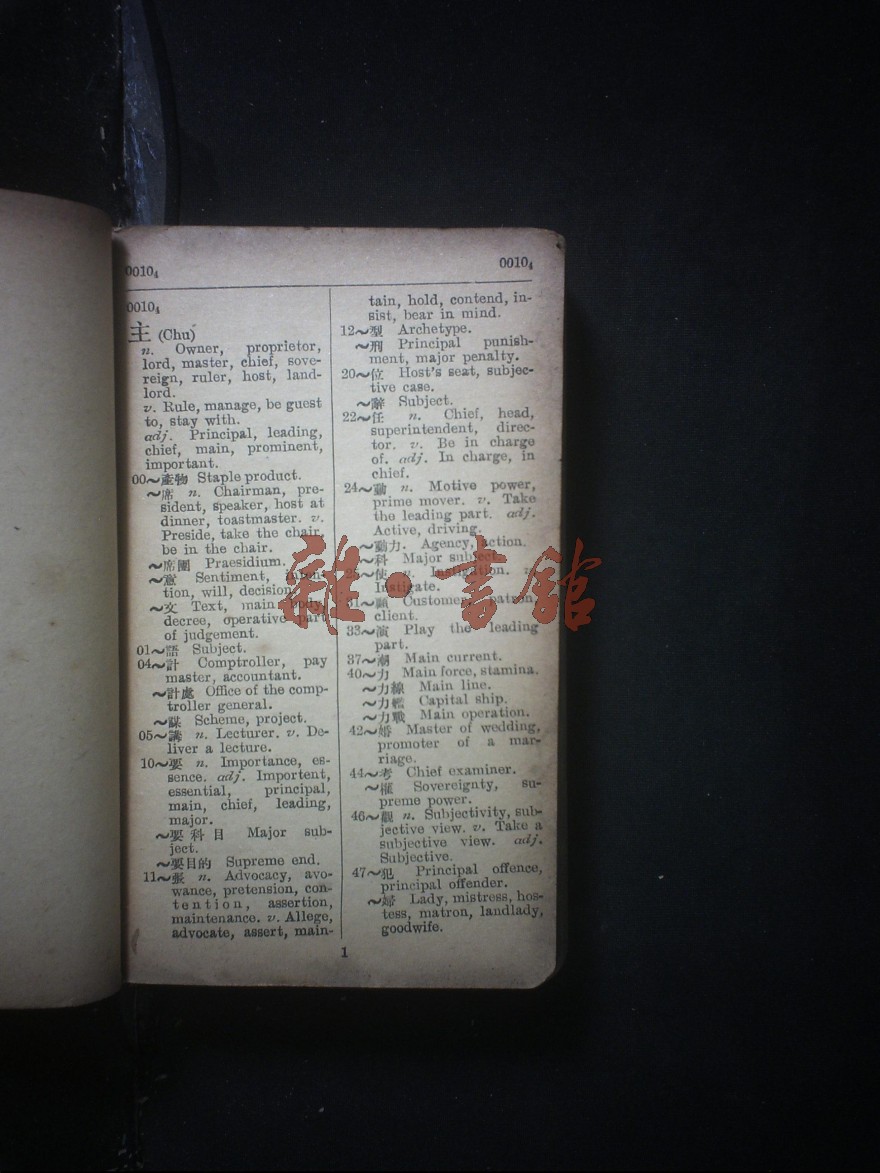 0010₄
0010₄
0010₄
主 (Chu)
n. Owner, proprietor,
lord, master, chief, sove-
reign, ruler, host, land-
lord.
v. Rule, manage, be guest
to, stay with.
adj. Principal, leading,
chief, main, prominent,
important.
00～產物 Staple product.
～席 n. Chairman, pre-
sident, speaker, host at
dinner, toastmaster. v.
Preside, take the chair,
be in the chair.
～席團 Praesidium.
～意 Sentiment, inten-
tion, will, decision.
～文 Text, main body,
decree, operative part
of judgement.
01～語 Subject.
04～計 Comptroller, pay
master, accountant.
～計處 Office of the comp-
troller general.
～謀 Scheme, project.
05～講 n. Lecturer. v. De-
liver a lecture.
10～要 n. Importance, es-
sence. adj. Importent,
essential, principal,
main, chief, leading,
major.
～要科目 Major sub-
ject.
～要目的 Supreme end.
11～張 n. Advocacy, avo-
wance, pretension, con-
tention, assertion,
maintenance. v. Allege,
advocate, assert, main-
tain, hold, contend, in-
sist, bear in mind.
12～型 Archetype.
～刑 Principal punish-
ment, major penalty.
20～位 Host's seat, subjec-
tive case.
～辭 Subject.
22～任 n. Chief, head,
superintendent, direc-
tor. v. Be in charge
of. adj. In charge, in
chief.
24～動 n. Motive power,
prime mover. v. Take
the leading part. adj.
Active, driving.
～動力. Agency, action.
～科 Major subject.
25～使 n. Instigation. v.
Instigate.
31～顧 Customer, patron,
client.
33～演 Play the leading
part.
37～潮 Main current.
40～力 Main force, stamina.
～力線 Main line.
～力艦 Capital ship.
～力戰 Main operation.
42～婚 Master of wedding,
promoter of a mar-
riage.
44～考 Chief examiner.
～權 Sovereignty, su-
preme power.
46～觀 n. Subjectivity, sub-
jective view. v. Take a
subjective view. adj.
Subjective.
47～犯 Principal offence,
principal offender.
～婦 Lady, mistress, hos-
tess, matron, landlady,
goodwife.
1
雜·書館